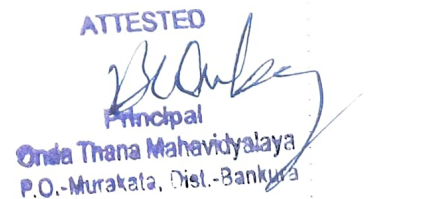 ATTESTED
Principal
Onda Thana Mahavidyalaya
P.O.-Murakata, Dist.-Bankura